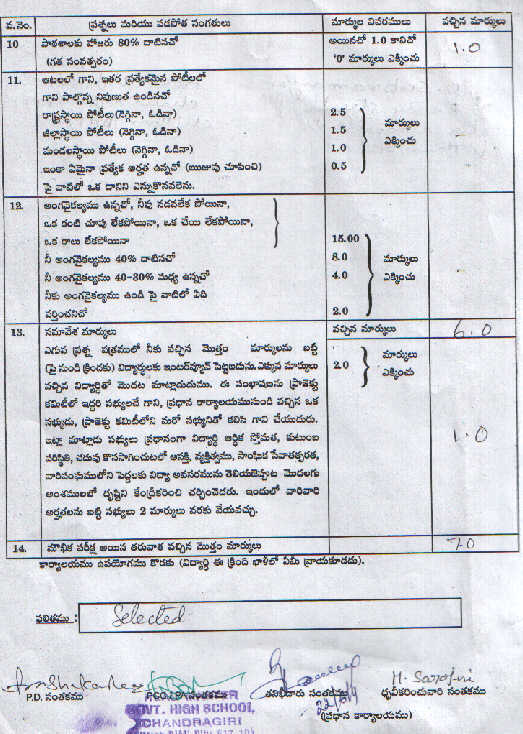 వ.నెం. ప్రశ్నలు మరియు వడపోత సంగతులు మార్కుల వివరములు వచ్చిన మార్కులు
10 పాఠశాలకు హాజరు 80% దాటినచో అయినచో 1.0 కానిచో 1.0
(గత సంవత్సరం) '0' మార్కులు ఎక్కించు
11. ఆటలలో గాని, ఇతర ప్రత్యేకమైన పోటీలలో
గాని పాల్గొన్న నిపుణుత ఉండినచో
రాష్ట్రస్థాయి పోటీలు (నెగ్గినా, ఓడినా) 2.5 మార్కులు
జిల్లాస్థాయి పోటీలు (నెగ్గినా, ఓడినా) 1.5 ఎక్కించు
మండలస్థాయి పోటీలు (నెగ్గినా, ఓడినా) 1.0
ఇంకా ఏమైనా ప్రత్యేక అర్హత ఉన్నచో (ఋజువు చూపించి) 0.5
పై వాటిలో ఒక దానిని ఎన్నుకొనవలెను.
12. అంగవైకల్యము ఉన్నచో, నీవు నడవలేక పోయినా,
ఒక కంటి చూపు లేకపోయినా, ఒక చేయి లేకపోయినా,
ఒక కాలు లేకపోయినా 15.00
నీ అంగవైకల్యము 40% దాటినచో 8.0 మార్కులు
నీ అంగవైకల్యము 40-80% మధ్య ఉన్నచో 4.0 ఎక్కించు
నీకు అంగవైకల్యము ఉండి పై వాటిలో ఏది
వర్తించనిచో 2.0
13. సమావేశ మార్కులు వచ్చిన మార్కులు 6.0
ఎగువ ప్రశ్న పత్రములో నీకు వచ్చిన మొత్తం మార్కులను బట్టి మార్కులు
(పై నుండి క్రిందకు) విద్యార్థులకు ఇంటర్వ్యూవ్ పెట్టబడును. ఎక్కువ మార్కులు 2.0 ఎక్కించు
వచ్చిన విద్యార్థితో మొదట మాట్లాడుదుము. ఈ సంభాషణను ప్రాజెక్టు
కమిటీలో ఇద్దరి సభ్యులచే గాని, ప్రధాన కార్యాలయమునుండి వచ్చిన ఒక
సభ్యుడు, ప్రాజెక్టు కమిటీలోని మరో సభ్యునితో కలిసి గాని చేయుదురు. 1.0
ఇట్లా మాట్లాడు సభ్యులు ప్రధానంగా విద్యార్థి ఆర్థిక స్తోమత, కుటుంబ
పరిస్థితి, చదువు కొనసాగించుటలో ఆసక్తి, వ్యక్తిత్వము, సాంఘిక సేవాతత్పరత,
వారివంషములోని పెద్దలకు విద్యా అవసరమును తెలియచెప్పుట మొదలగు
అంశములలో దృష్టిని కేంద్రీకరించి చర్చించెదరు. ఇందులో వారివారి
అర్హతలను బట్టి సభ్యులు 2 మార్కులు వరకు వేయవచ్చు.
14. మౌఖిక పరీక్ష అయిన తరువాత వచ్చిన మొత్తం మార్కులు 7.0
కార్యాలయము ఉపయోగము కొరకు (విద్యార్థి ఈ క్రింది ఖాళీలో ఏమీ వ్రాయకూడదు).
ఫలితము : Selected
H. Sarojini
P.D. సంతకము సంతకము తనిఖీదారు సంతకము ధృవీకరించువారి సంతకము
GOVT. HIGH SCHOOL, (ప్రధాన కార్యాలయము)
CHANDRAGIRI